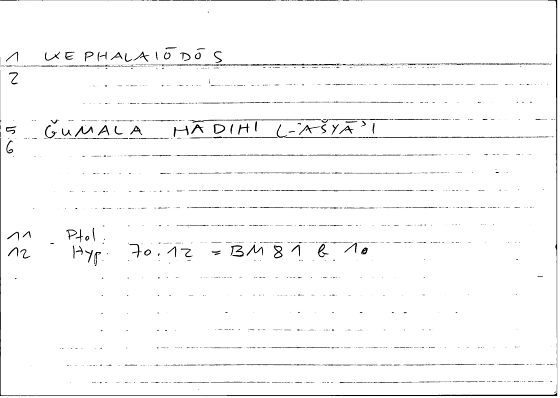 1 KEPHALAIŌDŌS
2
5 ǦUMALA HĀḎIHI L-AŠYĀʾI
6
11 Ptol.
12 Hyp. 70.12 = BM 81 b 10